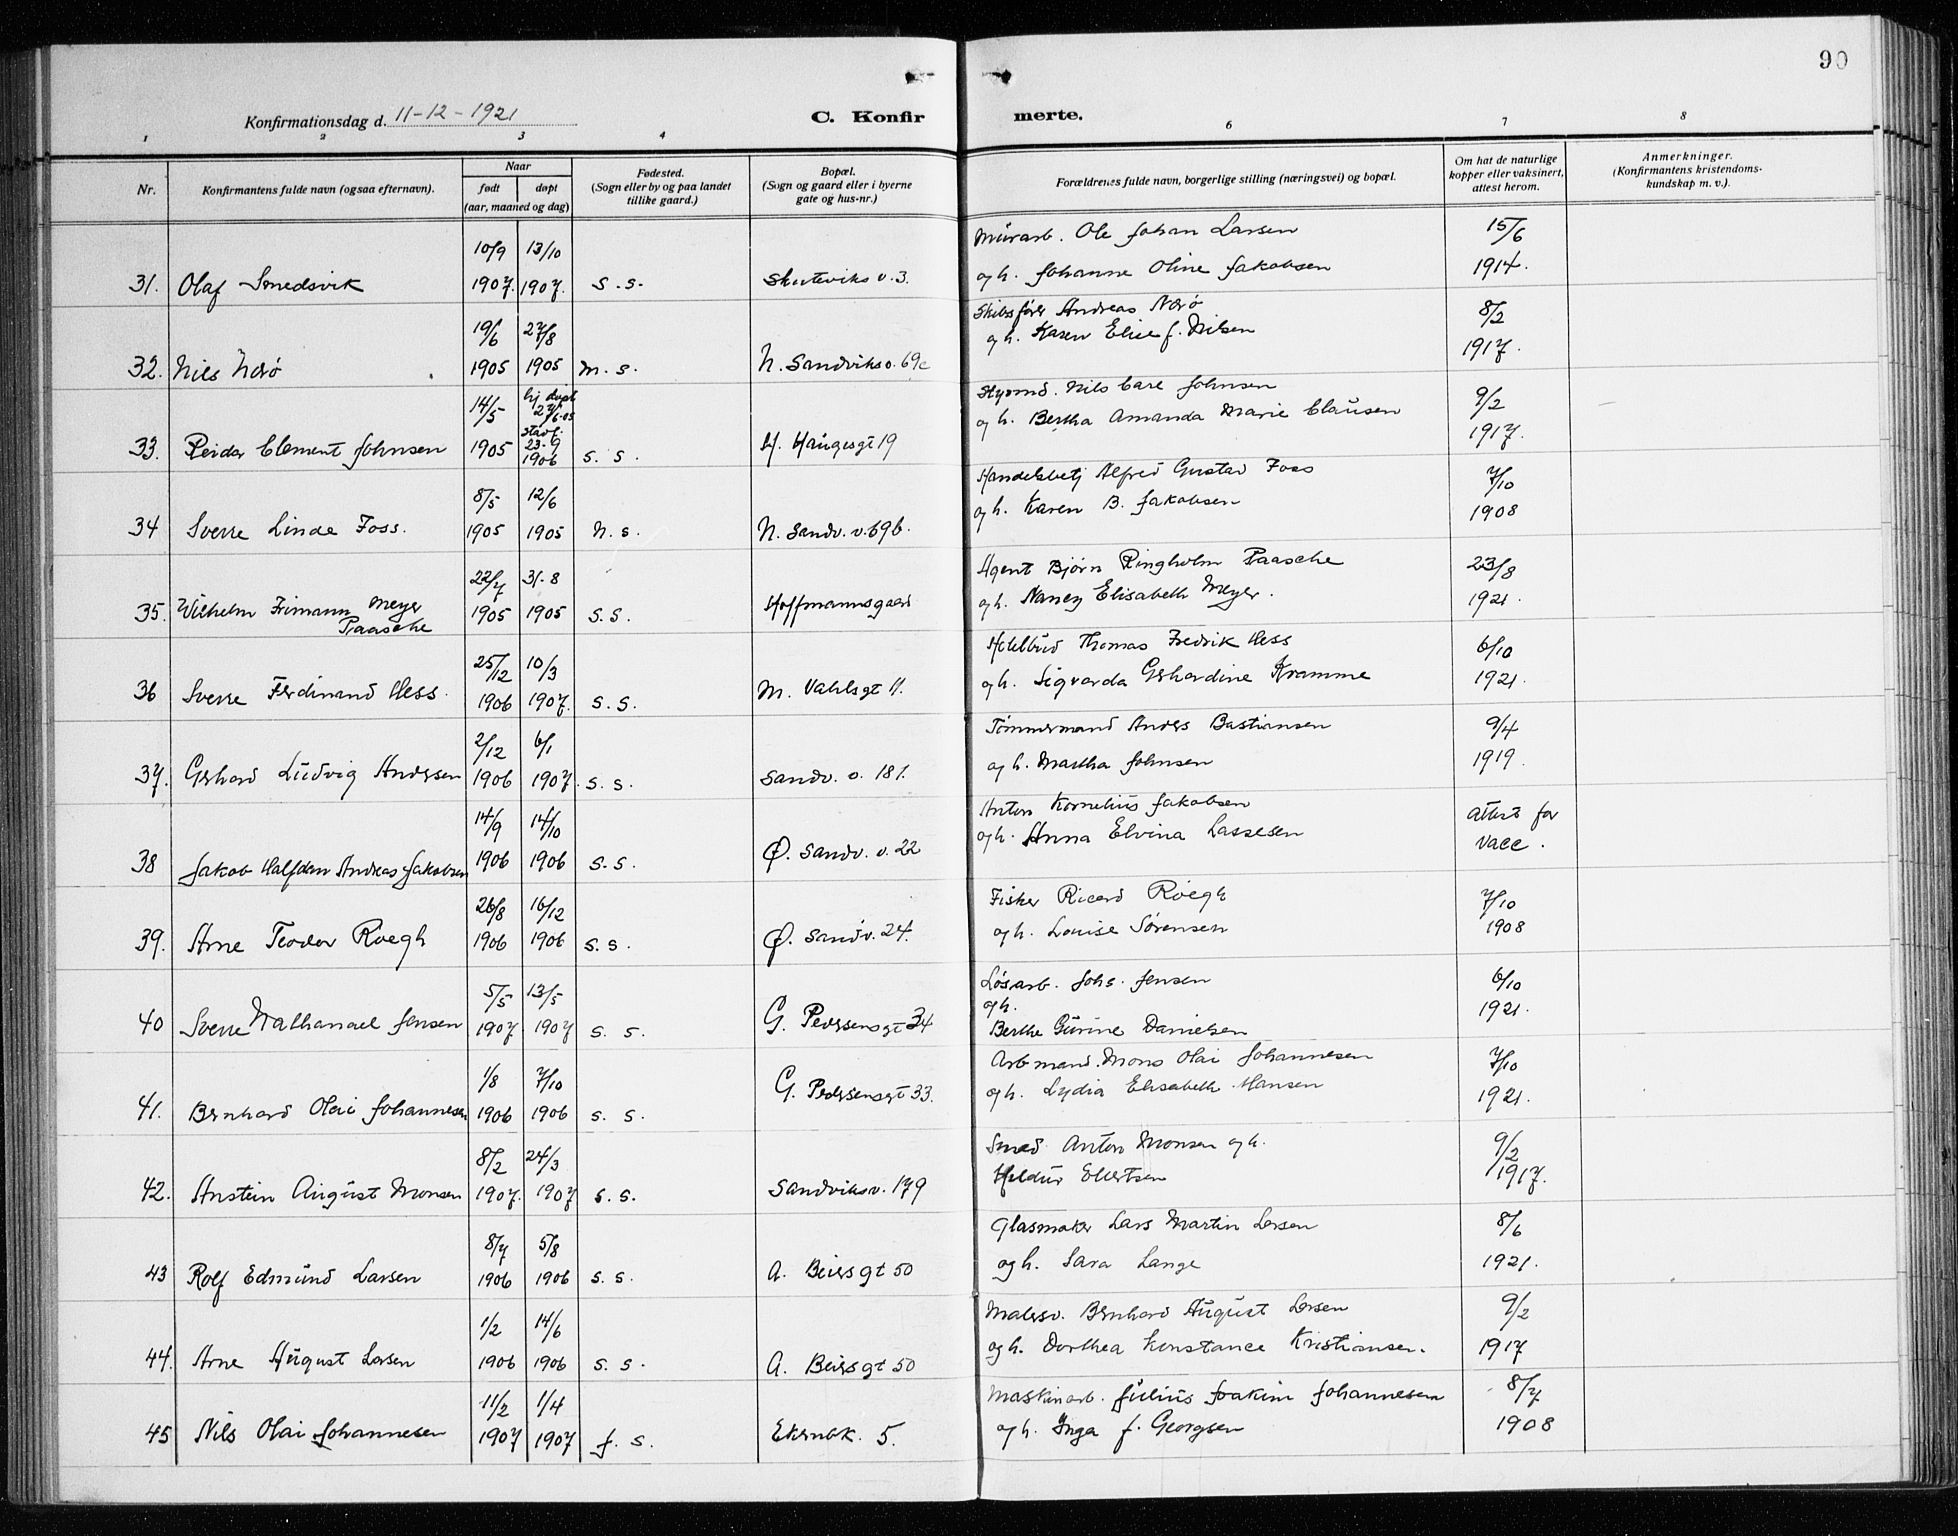 90
Konfirmationsdag d. 11-12-1921
C. Konfir
merte.
1 2 3 4 6 7 8
Nr.
Konfirmantens fulde navn (ogsaa efternavn).
Naar
født
døpt
(aar, maaned og dag)
Fødested.
(Sogn eller by og paa landet
tillike gaard.)
Bopæl.
(Sogn og gaard eller i byerne
gate og hus-nr.)
Forældrenes fulde navn, borgerlige stilling (næringsvei) og bopæl.
Om hat de naturlige
kopper eller vaksinert,
attest herom.
Anmerkninger.
(Konfirmantens kristendoms-
kundskap m. v.).
10/9 13/10 Murarb. Ole Johan Larsen 15/6
31. Olaf Smedsvik 1907. 1907. S. S. Skuteviks v. 3. og h. Johanne Oline Jakobsen 1914.
19/6 27/8 Skibsfører Andreas Nerø 8/2
32. Nils Nerø 1905 1905 M. S. N. Sandviksv. 69c og h. Karen Elise f. Nilsen 1917.
14/5 hj. døpt 27/6-05 Styrmd. Nils Carl Johnsen 9/2
stadf. 23-9 1906
33. Reidar Clement Johnsen 1905 S. S. H. Haugesgt 19 og h. Bertha Amanda Marie Clausen 1917.
8/5 12/6 Handelsbetj Alfred Gustav Foss 7/10
34 Sverre Linde Foss. 1905 1905 N. S. N. Sandv. v. 69b. og h. Karen B. Jakobsen 1908
22/7 31-8 Agent Bjørn Ringholm Paasche 23/8
35. Wilhelm Frimann Meyer Paasche 1905 1905 S. S. Hoffmannsgaard og h. Nancy Elisabeth Meyer. 1921.
25/12 10/3 Hotelbud Thomas Fredrik Hess 6/10
36 Sverre Ferdinand Hess. 1906 1907. S. S. M. Vahlsgt 11. og h. Sigvarda Gerhardine Kramme 1921.
2/12 6/1 Tømmermand Anders Bastiansen 9/4
37. Gerhard Ludvig Andersen 1906 1907. S. S. Sandv. v. 181. og h. Martha Johnsen 1919.
14/9 14/10 Anton Kornelius Jakobsen Attest for
38 Jakob Halfdan Andreas Jakobsen 1906 1906 S. S. Ø. Sandv. v. 22 og h. Anna Elvina Lassesen Vacc.
26/8 16/12 Fisker Ricard Roegh 7/10
39. Arne Teodor Roegh 1906 1906 S. S. Ø. Sandv. 24. og h. Louise Sørensen 1908
5/5 13/5 Løsarb. Johs. Jensen 6/10
og h.
40 Sverre Nathanael Jensen 1907. 1907 S. S. G. Pedersensgt 34 Berthe Gurine Danielsen 1921.
1/8 7/10 Arbmand. Mons Olai Johannesen 7/10
41. Bernhard Olai Johannesen 1906 1906 S. S. G. Pedersensgt 33. og h. Lydia Elisabeth Hansen 1921.
8/2 24/3 Smed Anton Monsen og h. 9/2
42. Anstein August Monsen 1907. 1907 S. S. Sandviksv. 179 Heldur Ellertsen 1917.
8/7 5/8 Glasmaker Lars Martin Larsen 8/6
43 Rolf Edmund Larsen 1906 1906 S. S. A. Beiersgt 50 og h. Sara Lange 1921.
1/2 14/6 Malersv. Bernhard August Larsen 9/2
44. Arne August Larsen 1906 1906 S. S. A. Beiersgt 50 og h. Dorthea Konstance Kristiansen. 1917
11/2 1/4 Maskinarb. Julius Joakim Johannesen 8/7
45 Nils Olai Johannesen 1907 1907 J. S. Ekrebk. 5. og h. Inga f. Georgsen 1908